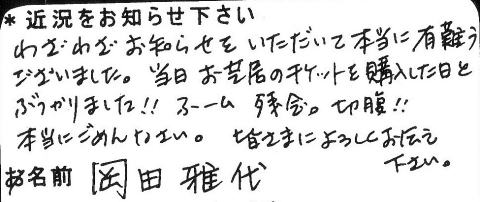 * 近況をお知らせ下さい
わざわざお知らせをいただいて本当に有難う
ございました。当日お芝居のチケットを購入した日と
ぶつかりました!! ふーム 残念。切腹!!
本当にごめんなさい。皆さまによろしくお伝え
下さい。
お名前 岡田雅代